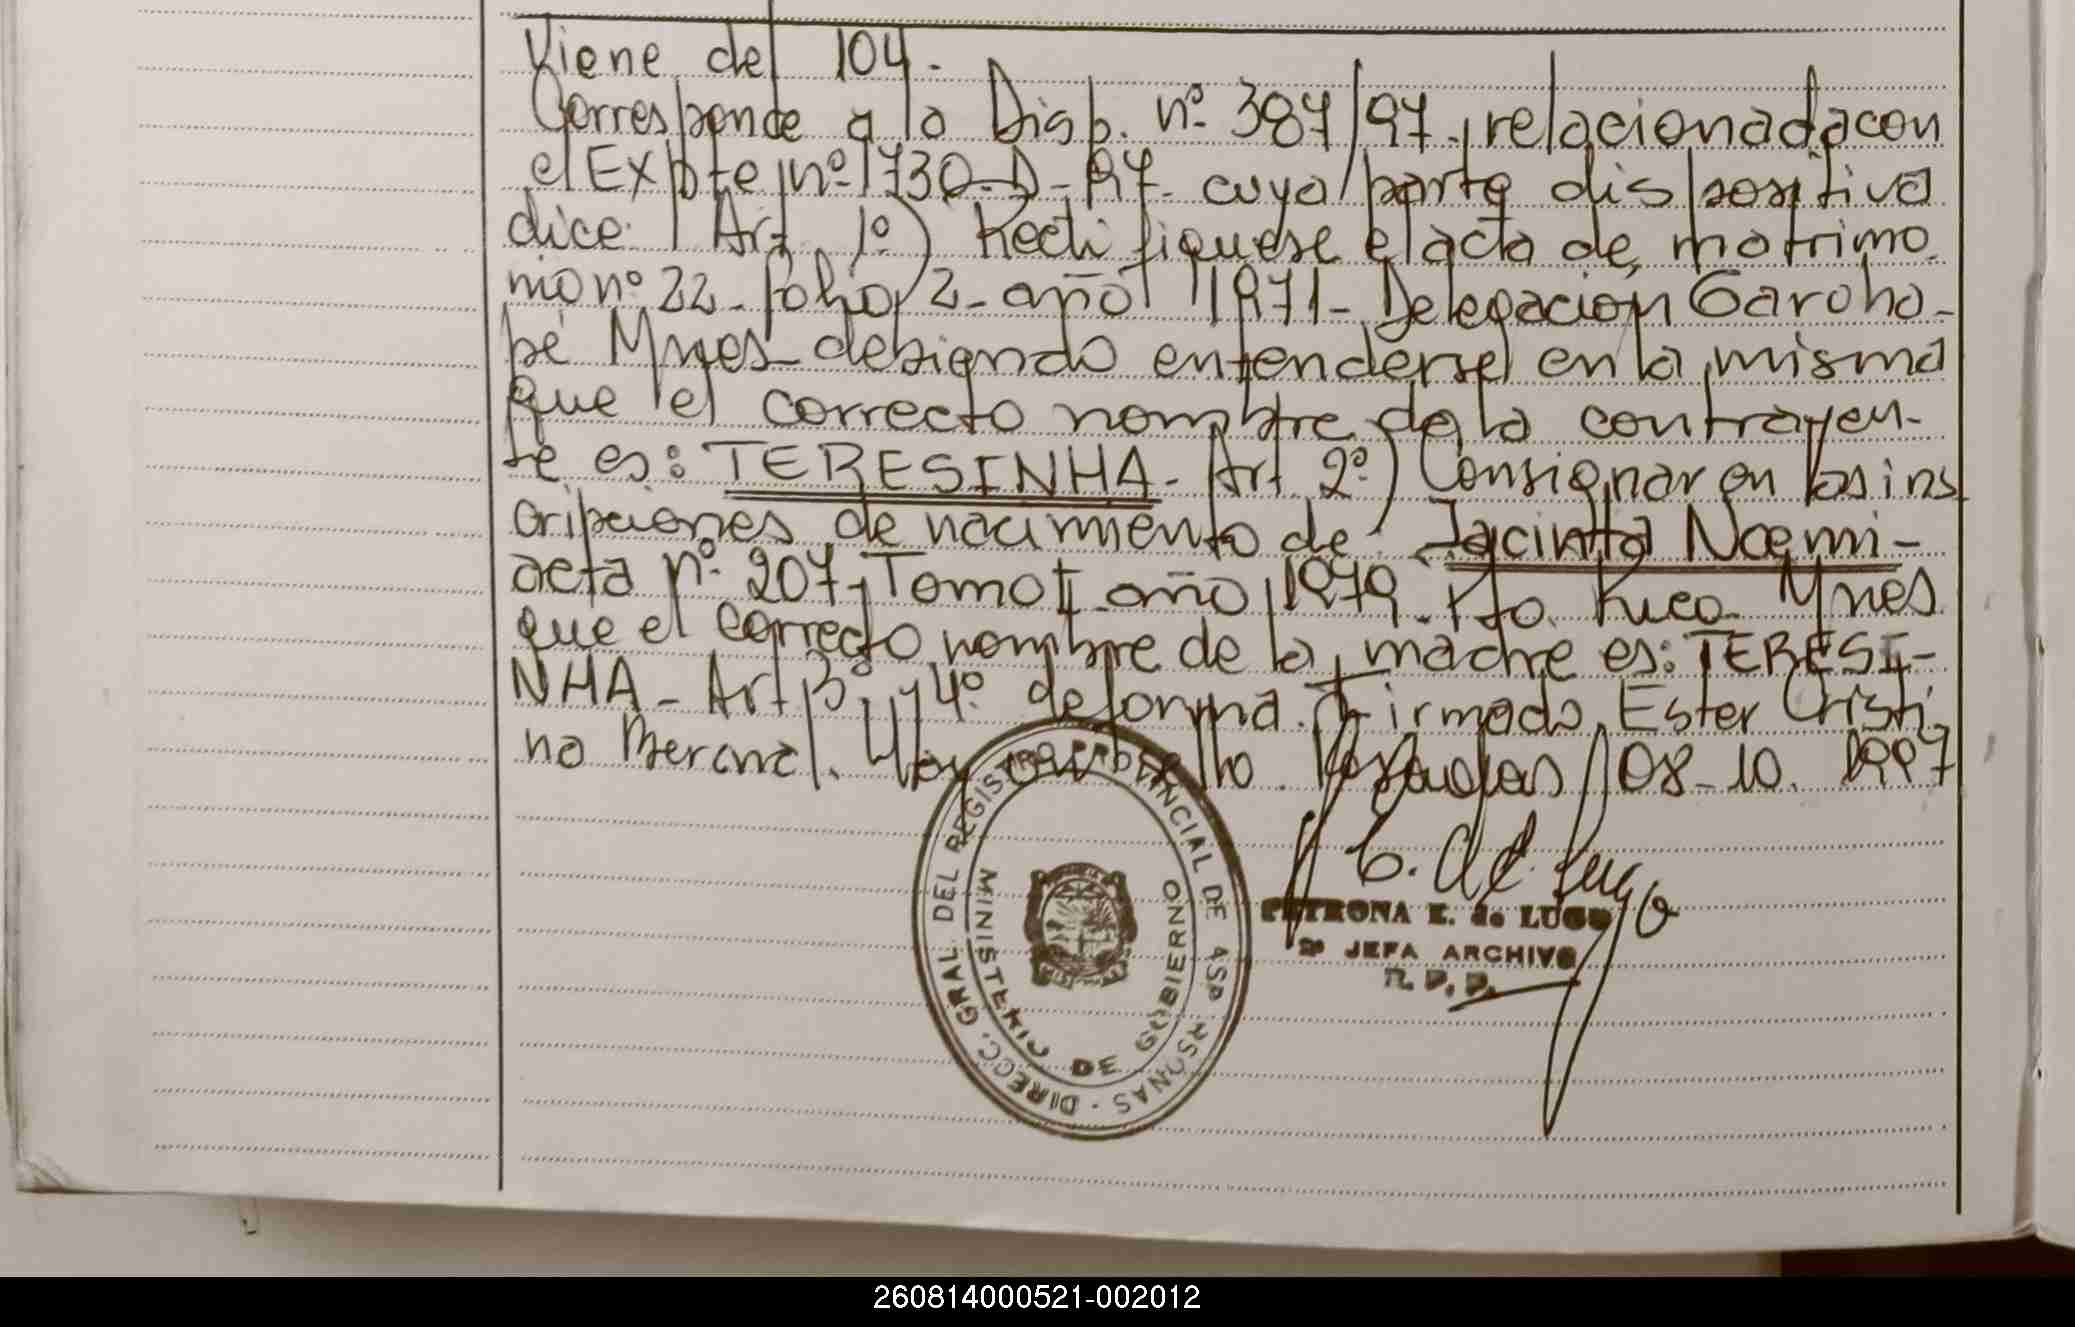 Viene del 104.
Corresponde a la Disp. nº 387/97, relacionada con
el Expte nº 1730-D-97- cuya parte dispositiva
dice: Art. 1º) Rectifiquese el acta de matrimo
nio nº 22- folio 2- año 1971- Delegacion Garuha-
pé Mnes- debiendo entenderse en la misma
que el correcto nombre de la contrayen-
te es: TERESINHA- Art 2º) Consignar en las ins
cripciones de nacimiento de Jacinta Noemi-
acta nº 207, Tomo II- año 1979. Pto. Rico- Mnes
que el correcto nombre de la madre es: TERESI-
NHA- Art 3º y 4º de forma. Firmado, Ester Cristi
na Bernal. Hay un sello. Posadas, 08-10. 1997
DIRECC. GRAL. DEL REGISTRO PROVINCIAL DE
MINISTERIO DE GOBIERNO
PETRONA E. de LUGO
2º JEFA ARCHIVO
R. P. P.
260814000521-002012